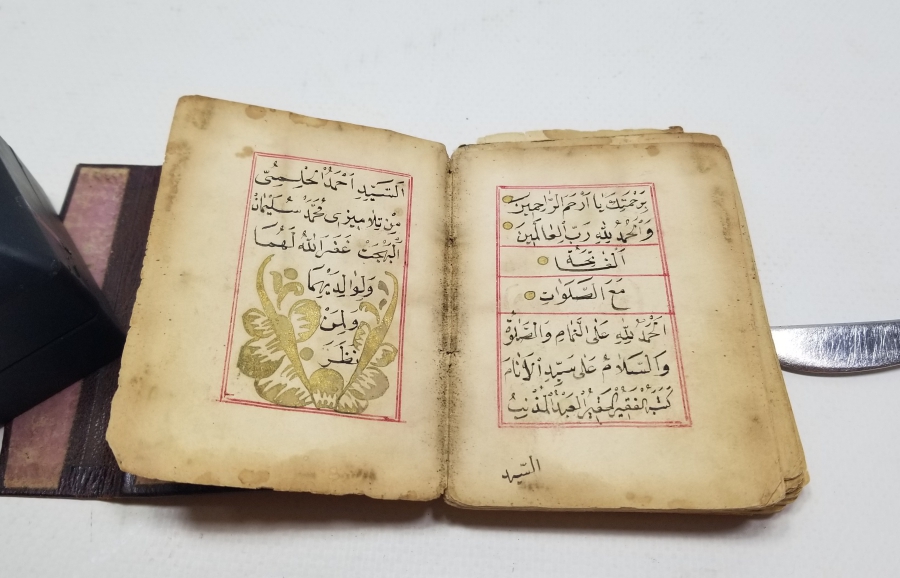 برحمتك يا ارحم الراحمين
والحمد لله رب العالمين
الفاتحة
مع الصلوات
الحمد لله على التمام والصلوة
والسلام على سيد الانام
كتبه الفقير الحقير العبد المذنب
السيد
السيد احمد الخلصى
من تلاميزى محمد سليمان
البهجت غفر الله لهما
ولوالديهما
ولمن
نظر